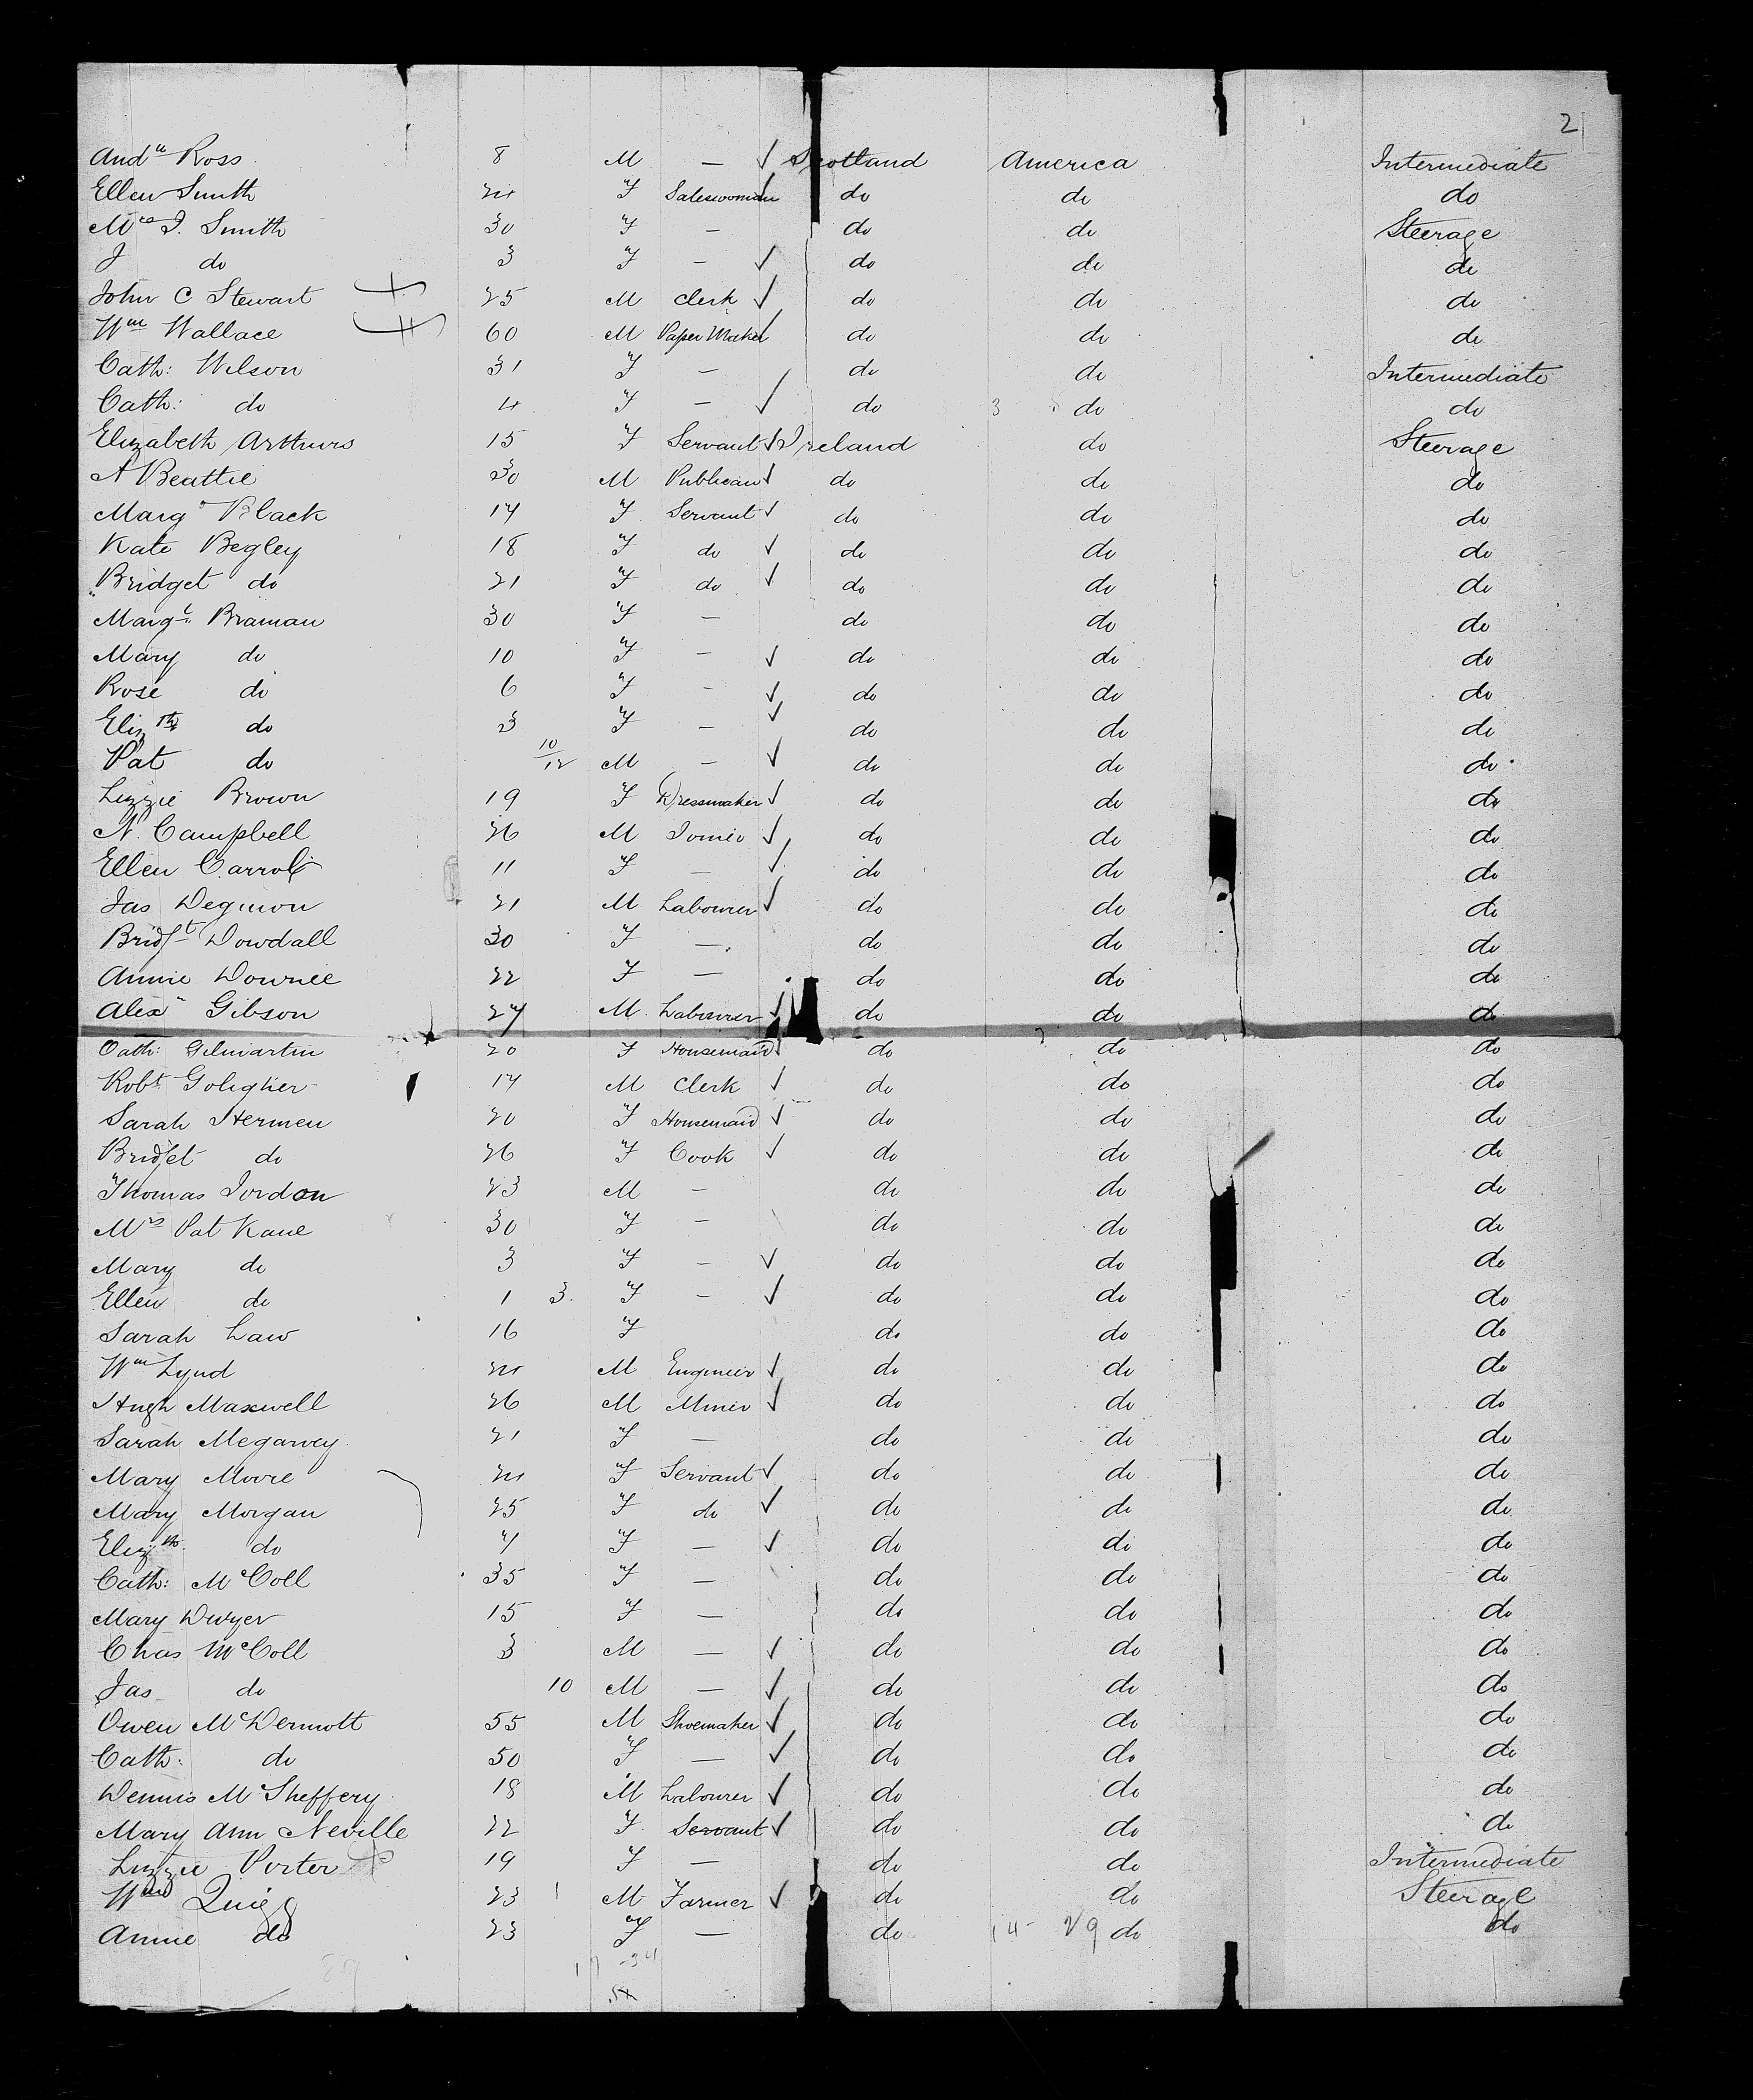 2
Andw Ross 8 M — ✓ Scotland America Intermediate
Ellen Smith 24 F Saleswoman ✓ do do do
Mrs J. Smith 30 F — do do Steerage
J do 3 F — ✓ do do do
John C Stewart 25 M Clerk ✓ do do do
Wm Wallace 60 M Paper Maker ✓ do do do
Cath: Wilson 31 F — do do Intermediate
Cath: do 4 F — ✓ do do do
Elizabeth Arthurs 15 F Servant ✓ Ireland do Steerage
A Beattie 30 M Publican ✓ do do do
Margt Black 17 F Servant ✓ do do do
Kate Begley 18 F do ✓ do do do
Bridget do 21 F do ✓ do do do
Margt Braman 30 F — do do do
Mary do 10 F — ✓ do do do
Rose do 6 F — ✓ do do do
Elizth do 3 F — ✓ do do do
Pat do 10/12 M — ✓ do do do
Lizzie Brown 19 F Dressmaker ✓ do do do
N. Campbell 26 M Joiner ✓ do do do
Ellen Carrol 11 F — ✓ do do do
Jas Degmon 21 M Labourer ✓ do do do
Bridgt Dowdall 30 F — do do do
Annie Downee 22 F — do do do
Alexr Gibson 27 M Labourer ✓ do do do
Cath: Gilmartin 20 F Housemaid ✓ do do do
Robt Goligher 17 M Clerk ✓ do do do
Sarah Hermen 20 F Housemaid ✓ do do do
Bridget do 26 F Cook ✓ do do do
Thomas Jordon 23 M — do do do
Mrs Pat Kane 30 F — do do do
Mary do 3 F — ✓ do do do
Ellen do 1 3 F — ✓ do do do
Sarah Law 16 F do do do
Wm Lynd 24 M Engineer ✓ do do do
Hugh Maxwell 26 M Miner ✓ do do do
Sarah Megarvey 21 F — do do do
Mary Moore 24 F Servant ✓ do do do
Mary Morgan 25 F do ✓ do do do
Elizth do 7 F — ✓ do do do
Cath: McColl 35 F — do do do
Mary Dwyer 15 F — do do do
Chas McColl 3 M — ✓ do do do
Jas do 10 M — ✓ do do do
Owen McDermott 55 M Shoemaker ✓ do do do
Cath: do 50 F — ✓ do do do
Dennis McSheffery 18 M Labourer ✓ do do do
Mary Ann Neville 22 F Servant ✓ do do do
Lizzie Porter 19 F — do do Intermediate
Wm Quigg 23 M Farmer ✓ do do Steerage
Annie do 23 F — do 14 - 29 do do
17 - 34